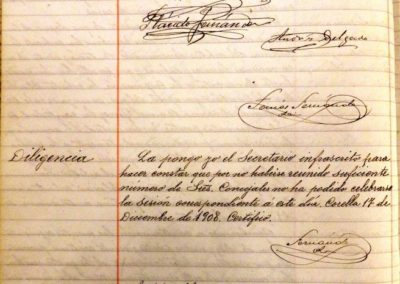 Plácido Fernandez
Andrés Delgado
Diligencia
La pongo yo el Secretario infrascrito para
hacer constar que por no haberse reunido suficiente
número de Sres. Concejales no ha podido celebrarse
la sesión correspondiente á este día. Corella 17 de
Diciembre de 1908. Certifico.